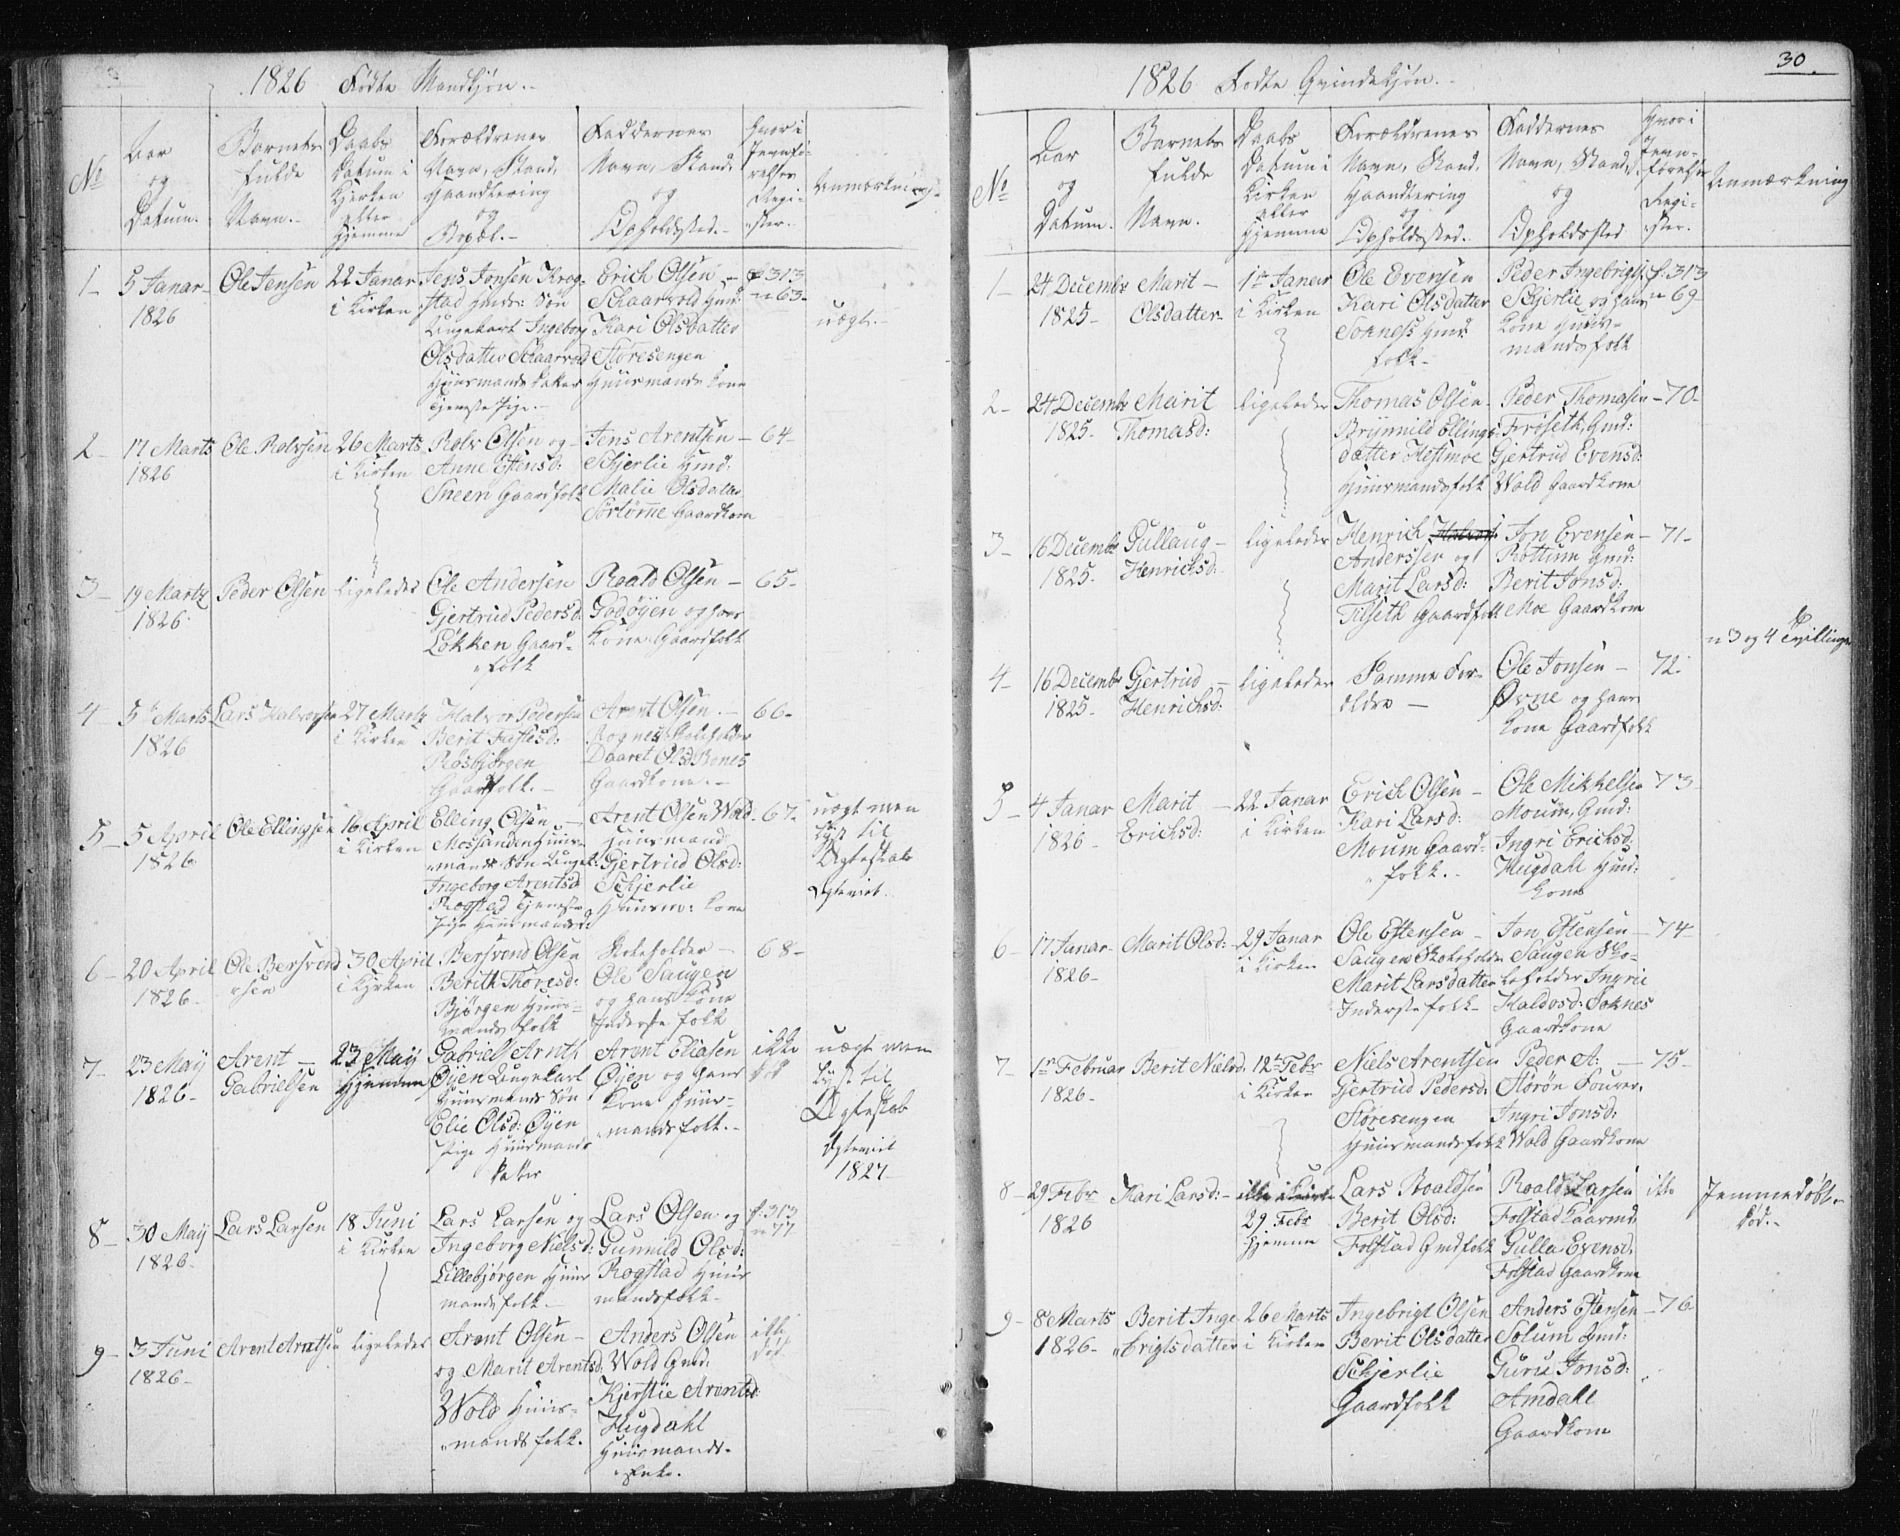 1826 Fødte Mandkjøn.
No
Aar
og
Datum.
Barnets
fulde
Navn.
Daabs
Datum i
Kirken
eller
Hjemme
Forældrenes
Navn, Stand,
Haandtering
og
Bopæl.
Faddernes
Navn, Stand,
og
Opholdssted.
Hvor i
Jevnfø-
relses
Regi-
ster.
Anmærkning.
1 5 Januar
1826
Ole Jensen
22 Januar
i Kirken
Jens Jonsen Krog-
stad Huusm: Søn
Ungekarl Ingeborg
Olsdatter Schaarvold
Huusmands datter
tjeneste Pige.
Erich Olsen
Schaarvold Gmd:
Kari Olsdatter
Støresengen
Huusmands Kone
f. 313
n 63
uægte.
2 17 Marts
1826
Ole Rolvsen
26 Marts
i Kirken
Rolv Olsen og
Anne Estensd:
Sneen Gaardfolk
Jens Arentsen
Schjerlie Gmd:
Malie Olsdatter
Sørtømme Gaardkone
64
3 19 Marts
1826
Peder Olsen
ligeledes
Ole Andersen
Gjertrud Pedersd:
Løkken Gaard-
folk
Roald Olsen
Godøyen og hans
Kone Gaardfolk
65
4 5te Marts
1826
Lars Halvorsen
27 Marts
i Kirken
Halvor Pedersen
Berit
Røsbjørgen
Gaardfolk.
Arent Olsen
Rognes Skoleholder
Daaret Olsd Bones
Gaardkone.
66
5 5 April
1826
Ole Ellingsen
16 April
i Kirken
Elling Olsen
Mossanden Huus-
mands Søn Ungek:
Ingeborg Arentsd:
Rogstad tjeneste
Pige Huusmandsd
Arent Olsen Wold
Huusmand
Gjertrud Olsd:
Schjerlie
Huusm: Kone
67
uægte men
lyst til
Ægteskab
Ægteviet.
6 20 April
1826
Ole Bersvend
rsen
30 April
i Kirken
Bersvend Olsen
Berith Thoresd:
Bjørgen Huus-
mands folk
Skoleholder
Ole Saugen
og hans Kone
Inderste folk
68
7 23 Maij
1826
Arent
Gabrielsen
23 Maij
Hjemme
Gabriel Arnts
Øyen Ungekarl
Huusmands Søn
Elie Olsd: Øyen
Pige Huusmands
datter
Arent Eliasen
Øyen og hans
Kone Huus-
mandsfolk.
ikke
uægte men
lyst til
Ægteskab
Ægteviet
1827
8 30 Maij
1826
Lars Larsen
18 Juni
i Kirken
Lars Larsen og
Ingeborg Nielsd:
Lillebjørgen Huus
mandsfolk
Lars Olsen og
Gunnild Olsd:
Rogstad Huus
mandsfolk
f. 313
n 77
9 3 Juni
1826
Arent Arntsen
ligeledes
Arent Olsen
og Marit Arentsd:
Wold Huus-
mandsfolk.
Anders Olsen
Wold Gmd:
Kjerstie Arentsd:
Hugdahl
Huusmands-
Enke.
ikke
30
1826 Fødte Qvindekjøn.
No
Aar
og
Datum.
Barnets
fulde
Navn.
Daabs
Datum i
Kirken
eller
Hjemme
Forældrenes
Navn, Stand,
Haandtering
og
Opholdssted.
Faddernes
Navn, Stand,
og
Opholdssted
Hvor i
Jevn-
førelses
Regi-
ster.
Anmærkning
1 24 Decembr
1825
Marit
Olsdatter
1te Januar
i Kirken
Ole Evensen
Kari Olsdatter
Soknæss Gmd
folk
Peder Ingebrigts:
Schjerlie og hans
Kone Huus-
mandsfolk
f. 313
n 69
2 24 Decembr
1825
Marit
Thomasd:
ligeledes
Thomas Olsen
Brynnild Ellings-
datter Hestmoe
Huusmandsfolk
Peder Thomasen
Forøseth, Gmd:
Gjertrud Evensd:
Wold Gaardkone
70
3 16 Decembr
1825
Gullaug
Henrichsd:
ligeledes
Henrich
Anderssen og
Marit Larsd:
Tilseth Gaardfolk
Jon Evensen
Rottum Gmd:
Berit Jonsd:
Moe Gaardkone
71
n 3 og 4 Tvillinge
4 16 Decembr
1825
Gjertrud
Henrichsd:
ligeledes
Samme For-
ældre
Ole Jonsen
Øvne og hans
Kone Gaardfolk
72
5 4 Januar
1826
Marit
Erichsd:
22 Januar
i Kirken
Erich Olsen
Kari Larsd:
Moum Gaard-
folk.
Ole Mikkelsen
Moum, Gmd:
Ingri Erichsd:
Hugdahl Gmd:
Kone
73
6 17 Januar
1826
Marit Olsd:
29 Januar
i Kirken
Ole Estensen
Saugen Skoleholder
Marit Larsdatter
Inderste folk
Jon Estensen
Saugen Sko-
leholder Ingrie
Haldosd: Soknes
Gaardkone
74
7 1te Februar
1826
Berit Nielsd.
12te Febr
i Kirken
Niels Arentsen
Gjertrud Pedersd:
Støresengen
Huusmandsfolk
Peder A:
Størøn Fourer,
Ingri Jonsd:
Wold Gaardkone
75
8 29 Febr
1826
Kari Larsd:
29 Febr
Hjemme
Lars Roaldsen
Berit Olsd:
Folstad Gmdfolk
Roald Larsen
Folstad Gaarmd.
Gulla Evensd.
Folstad Gaardkone
ikke
Hjemmedøbt
død.
9 8 Marts
1826
Berit Inge
brigtsdatter
26 Marts
i Kirken
Ingebrigt Olsen
Berit Olsdatter
Schjerlie
Gaardfolk
Anders Estensen
Solum Gmd:
Guru Jonsd:
Amdahl
Gaardkone
76